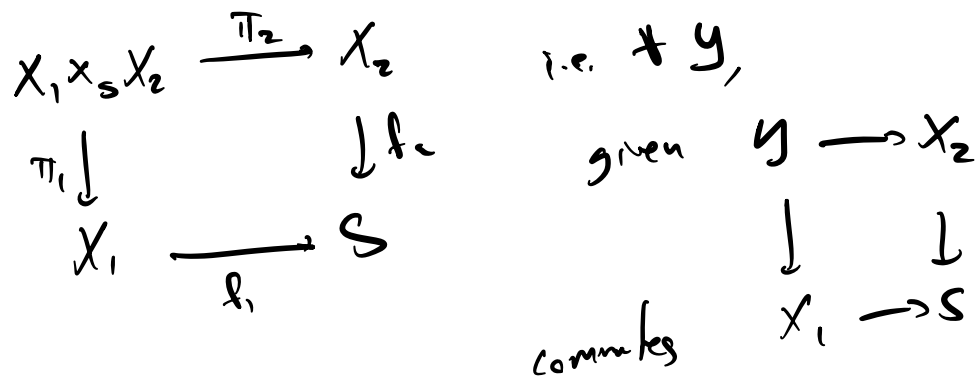 X₁ ×ₛ X₂ → π₂ X₂
π₁ ↓ ↓ f₂
X₁ → f₁ S
i.e. ∀ Y,
given Y → X₂
↓ ↓
X₁ → S
commutes